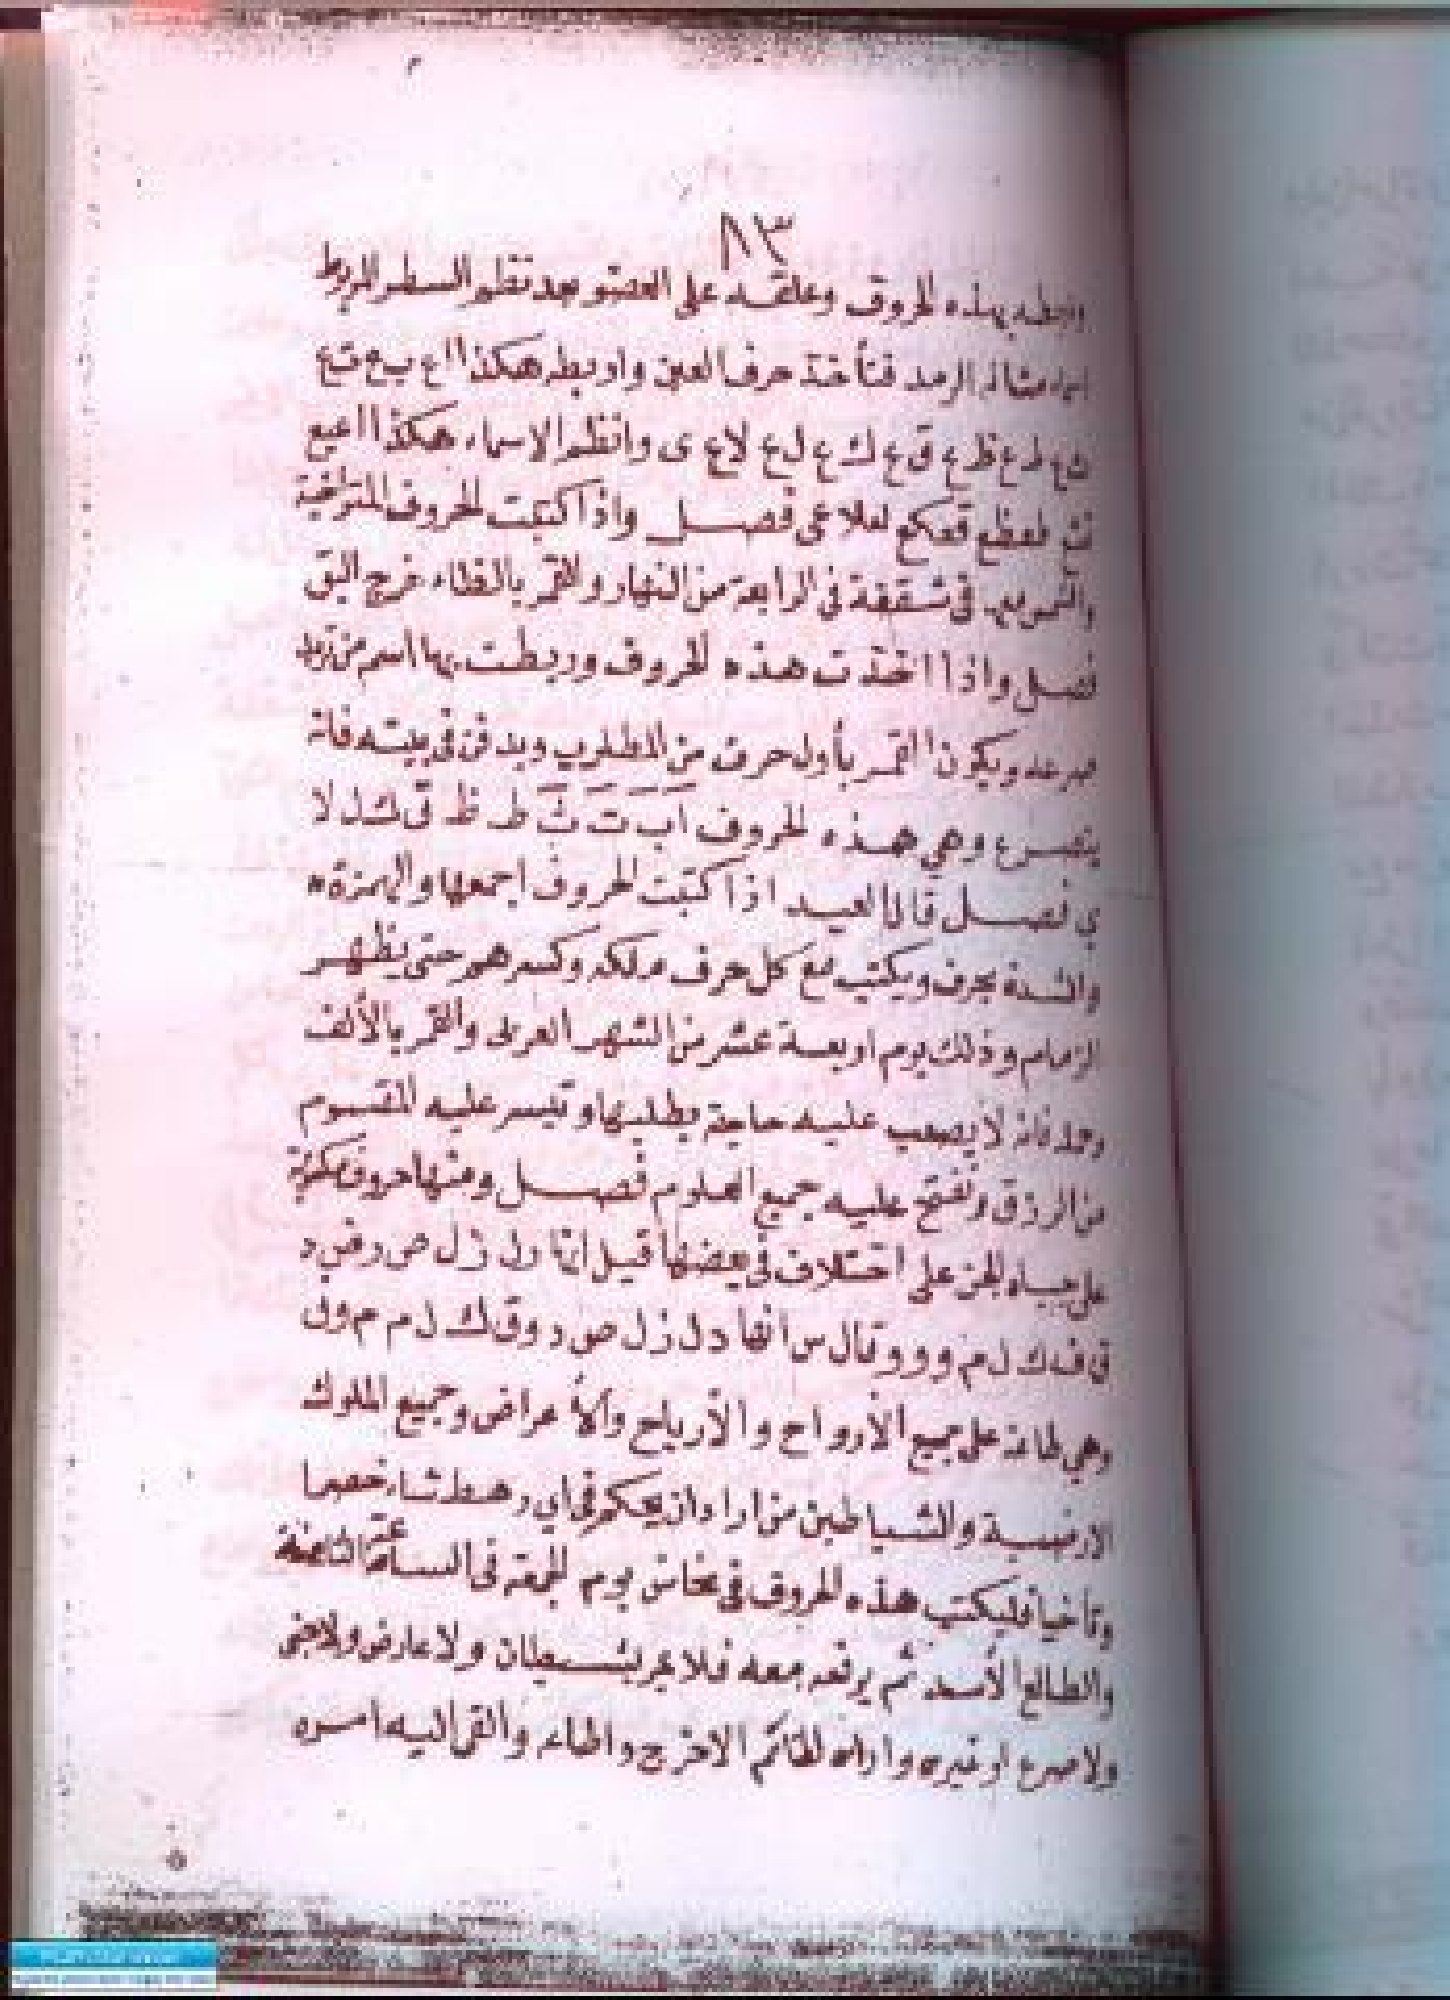 ٨٣
واربطه بهذه الحروف وعلقه على العضو بعد تنظم السطر المربوط
اسماء مثاله الرمد فتأخذ حرف العين واربطه هكذا ااع بع تع
ثع طع ظع قع كع لع لاع ى وانظم الاسماء هكذا ااعبع
تثع طعظع قعكع لعلاعى فصل واذا كتبت الحروف المتراخية
في شقفة في الرابعة من النهار والقمر بالظاء خرج البق
فصل واذا اخذت هذه الحروف وربطت بها اسم من تريد
صرعه ويكون القمر بأول حرف من المطلوب ويدفن في بيته فانه
ينصرع وهي هذه الحروف آ ب ت ث ط ظ ق ك ل لا
ي فصل قال العبد اذا كتبت الحروف اجمعها والهمزة
والشدة بحرف ويكتب مع كل حرف ملكه وكسرهم حتى يظهر
الزمام وذلك يوم اربعة عشر من الشهر العربى والقمر بالألف
وحمله فانه لا يصعب عليه حاجة يطلبها وتيسر عليه المقسوم
من الرزق وتفتح عليه جميع العلوم فصل ومنها حروف مكتوبة
على جباه الجن على اختلاف في بعضها قيل انها دل زل ص رض د
ق ف ك ل م ووو وقال س انها دل زل ص د وق ك ل م م ون
وهي طاعة على جميع الأرواح والأرياح والأعراض وجميع الملوك
الارضية والشياطين من اراد ان يحكم في اي رهط شاء خصما
وتأخيا فليكتب هذه الحروف في نحاس يوم الجمعة في الساعة الثامنة
والطالع الأسد ثم يرفعه معه فلا يمر بشيطان ولا عارض ولا جنى
ولا صرع او غيره واراه الخاتم الا خرج واطاعه والقى اليه امره